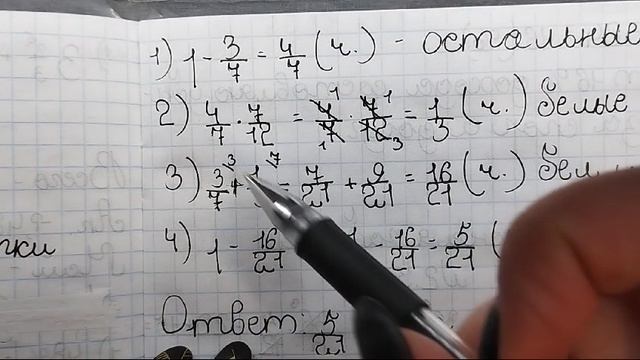 1) 1 - 3/7 = 4/7 (ч.) - остальные
2) 4/7 · 7/12 = 4/7 1 · 7/12 1 3 = 1/3 (ч.) белые
3) 3/7 3 + 1 7 = 7/21 + 9/21 = 16/21 (ч.)
чки
4) 1 - 16/21 - 16/21 = 5/21 (
Ответ: 5/21